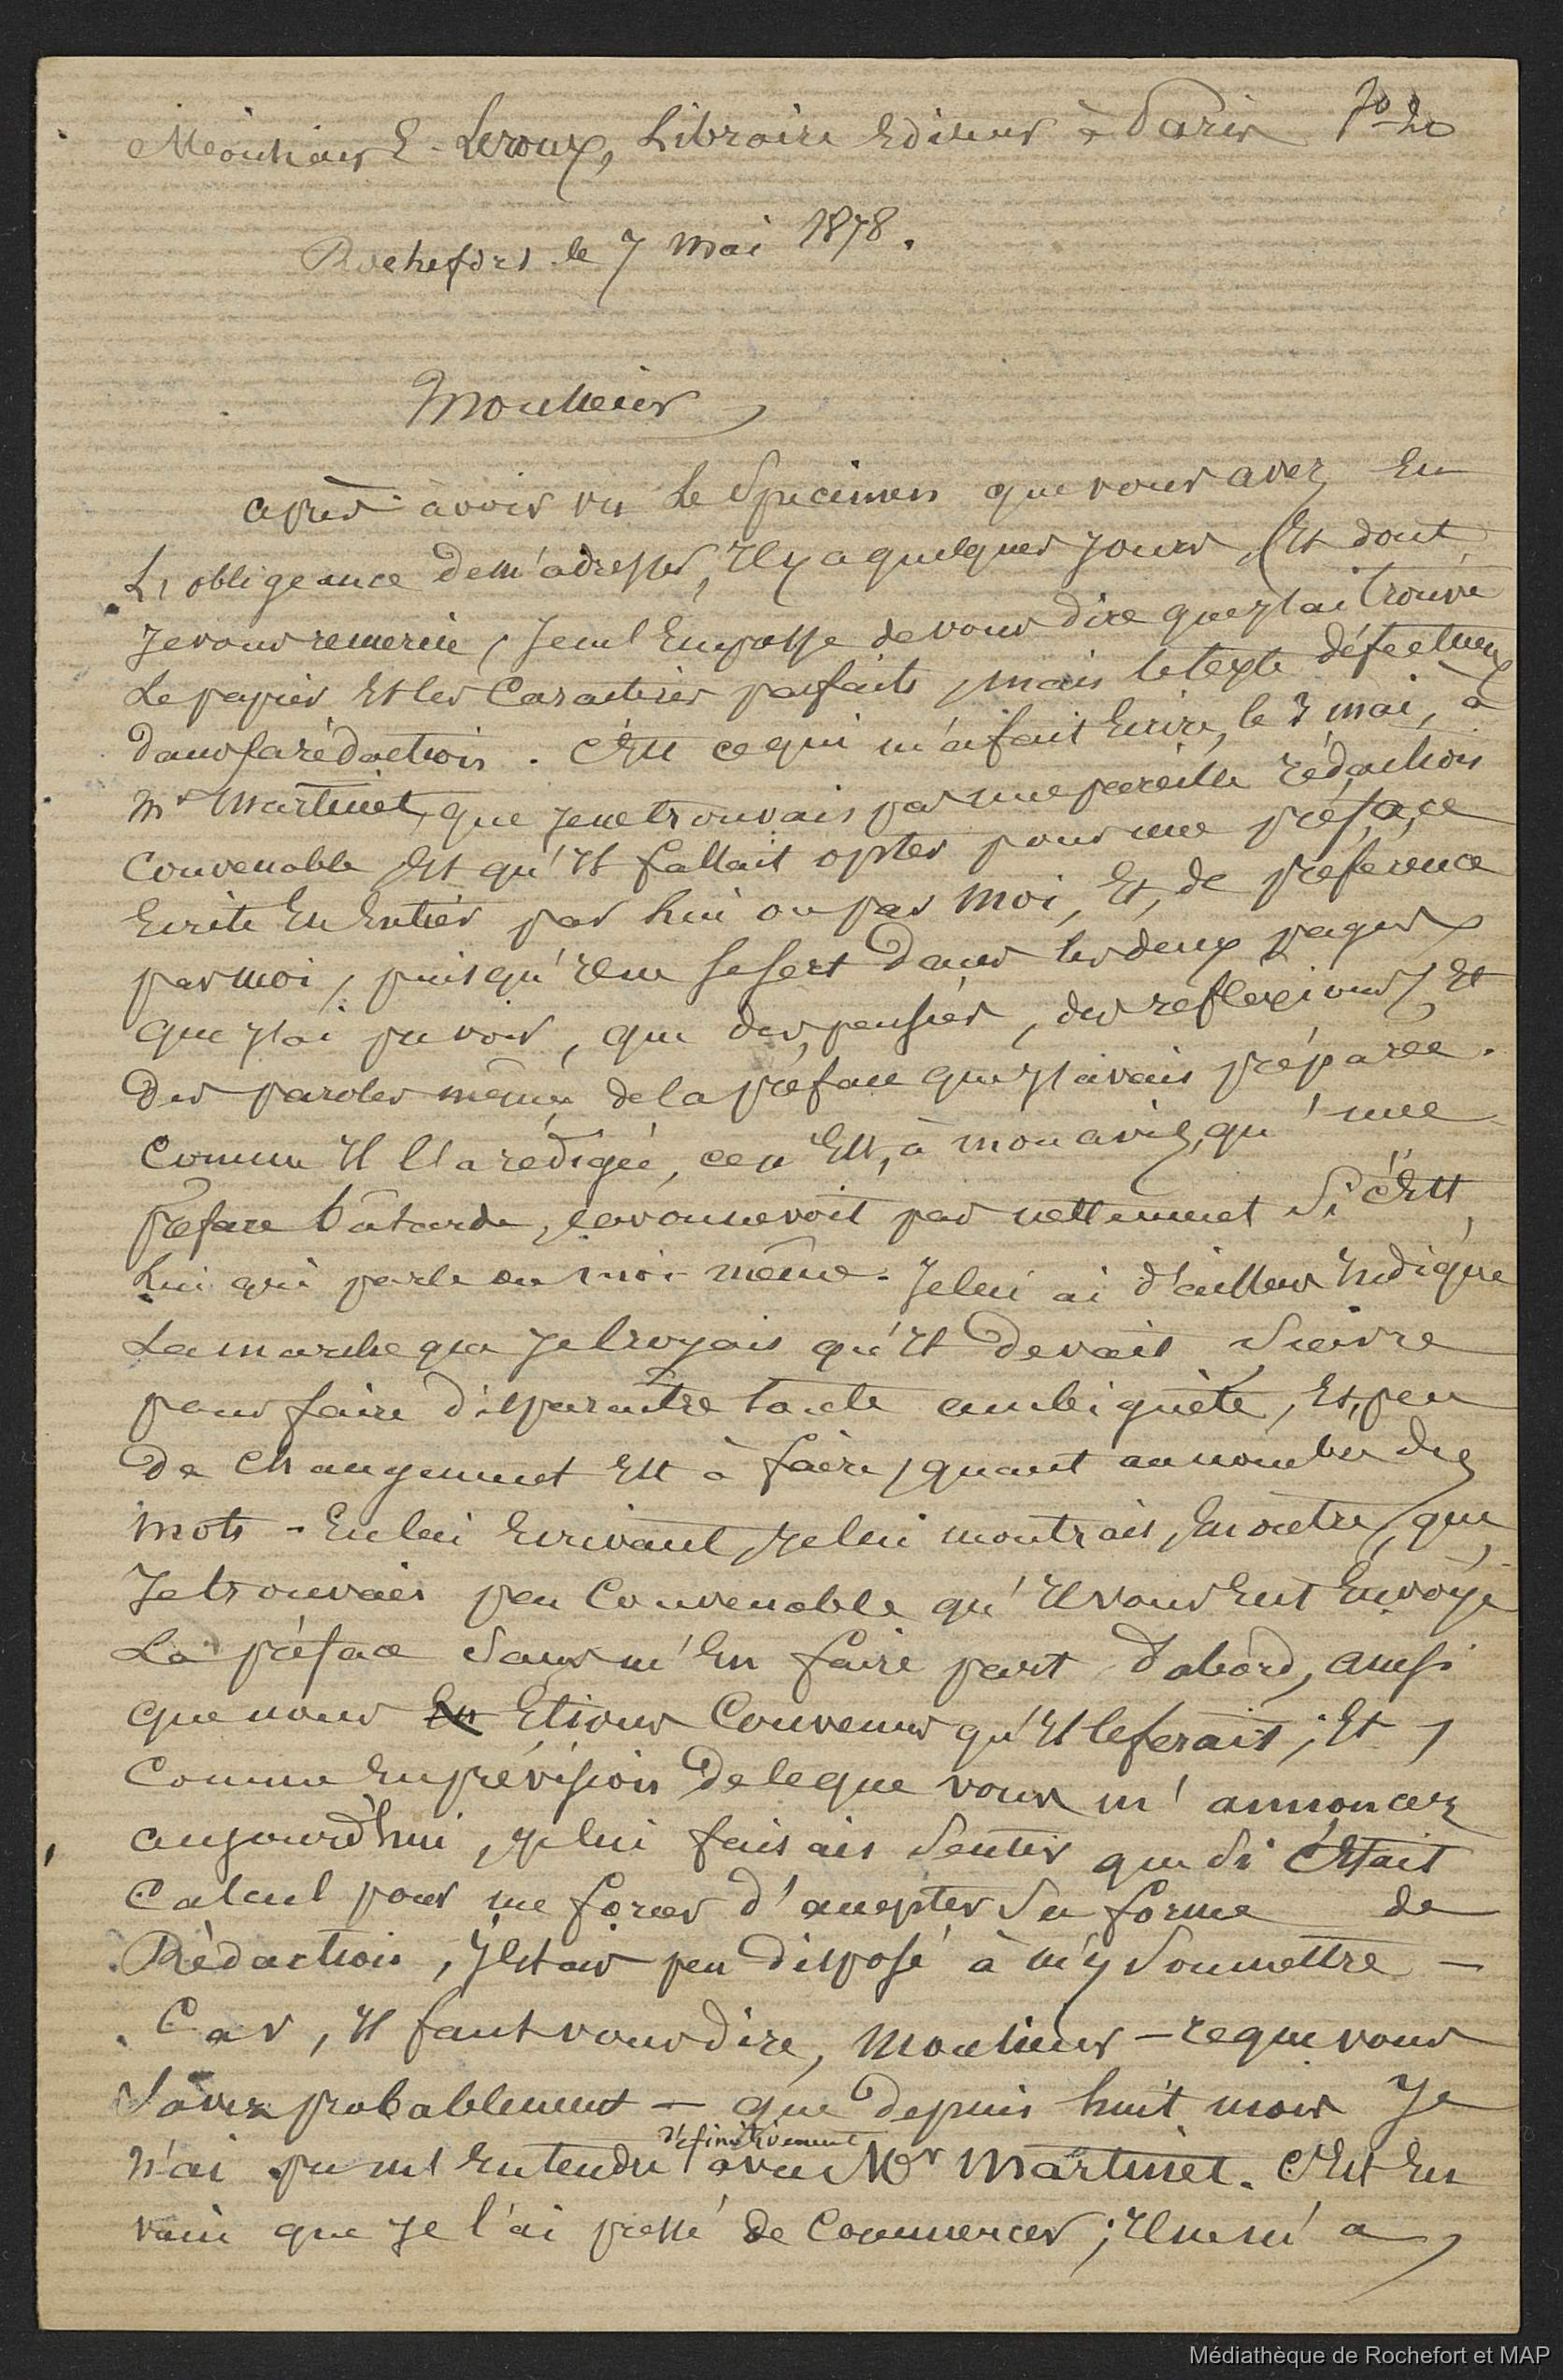 Monsieur E. Leroux, Libraire Editeur à Paris
Rochefort le 7 mai 1878.
Monsieur,
après avoir vu Le Specimen que vous avez Eu
L'obligeance de m'adresser, Il y a quelques Jours, Et dont
Je vous remercie, Je m'Empresse de vous dire que J'ai trouvé
Le papier Et les Caractères parfaits, mais le texte défectueux
dans sa rédaction. C'Est ce qui m'a fait Ecrire, le 3 mai, à
Mr Martinet, que Je ne trouvais pas une pareille rédaction
Convenable Et qu'Il fallait opter pour une préface
Ecrite En Entier par lui ou par moi, Et, de préférence
par moi, puisqu'Il ne se sert dans les deux pages
que J'ai pu voir, que des pensées, des réflexions, Et
des paroles même de la préface que J'avais préparée.
Comme Il l'a rédigée, ce n'Est, à mon avis, qu'une
préface bâtarde, Car on ne voit pas nettement Si c'Est
Lui qui parle ou moi-même. Je lui ai d'ailleurs Indiqué
La marche que Je Croyais qu'Il devait Suivre
pour faire disparaître toute ambiguité, Et, peu
de Changement Est à faire, quant au nombre des
mots - En lui Ecrivant, Je lui montrais, En outre, que
Je trouvais peu Convenable qu'Il vous Eut Envoyé
La préface Sans m'En faire part d'abord, ainsi
que nous En Etions Convenus qu'Il le ferait; Et,
Comme En prévision de ce que vous m'annoncez
aujourd'hui, Je lui faisais Sentir que Si C'Etait
Calcul pour me forcer d'accepter Sa forme de
Rédaction, J'Etais peu disposé à m'y Soumettre -
Car, Il faut vous dire, Monsieur - ce que vous
Savez probablement - que depuis huit mois Je
n'ai pu m'Entendre définitivement avec Mr Martinet. C'Est En
vain que Je l'ai pressé de Commencer; Il ne m'a
Médiathèque de Rochefort et MAP